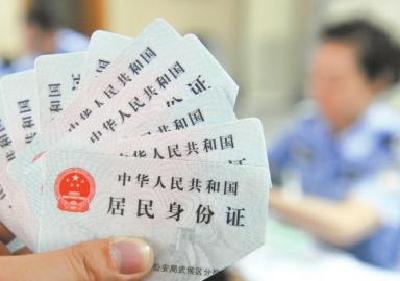 中华人民共和国
份证
中华人民共和国
份证
中华人民共和国
中华人民共和国
居民身份证
公安局武侯区分